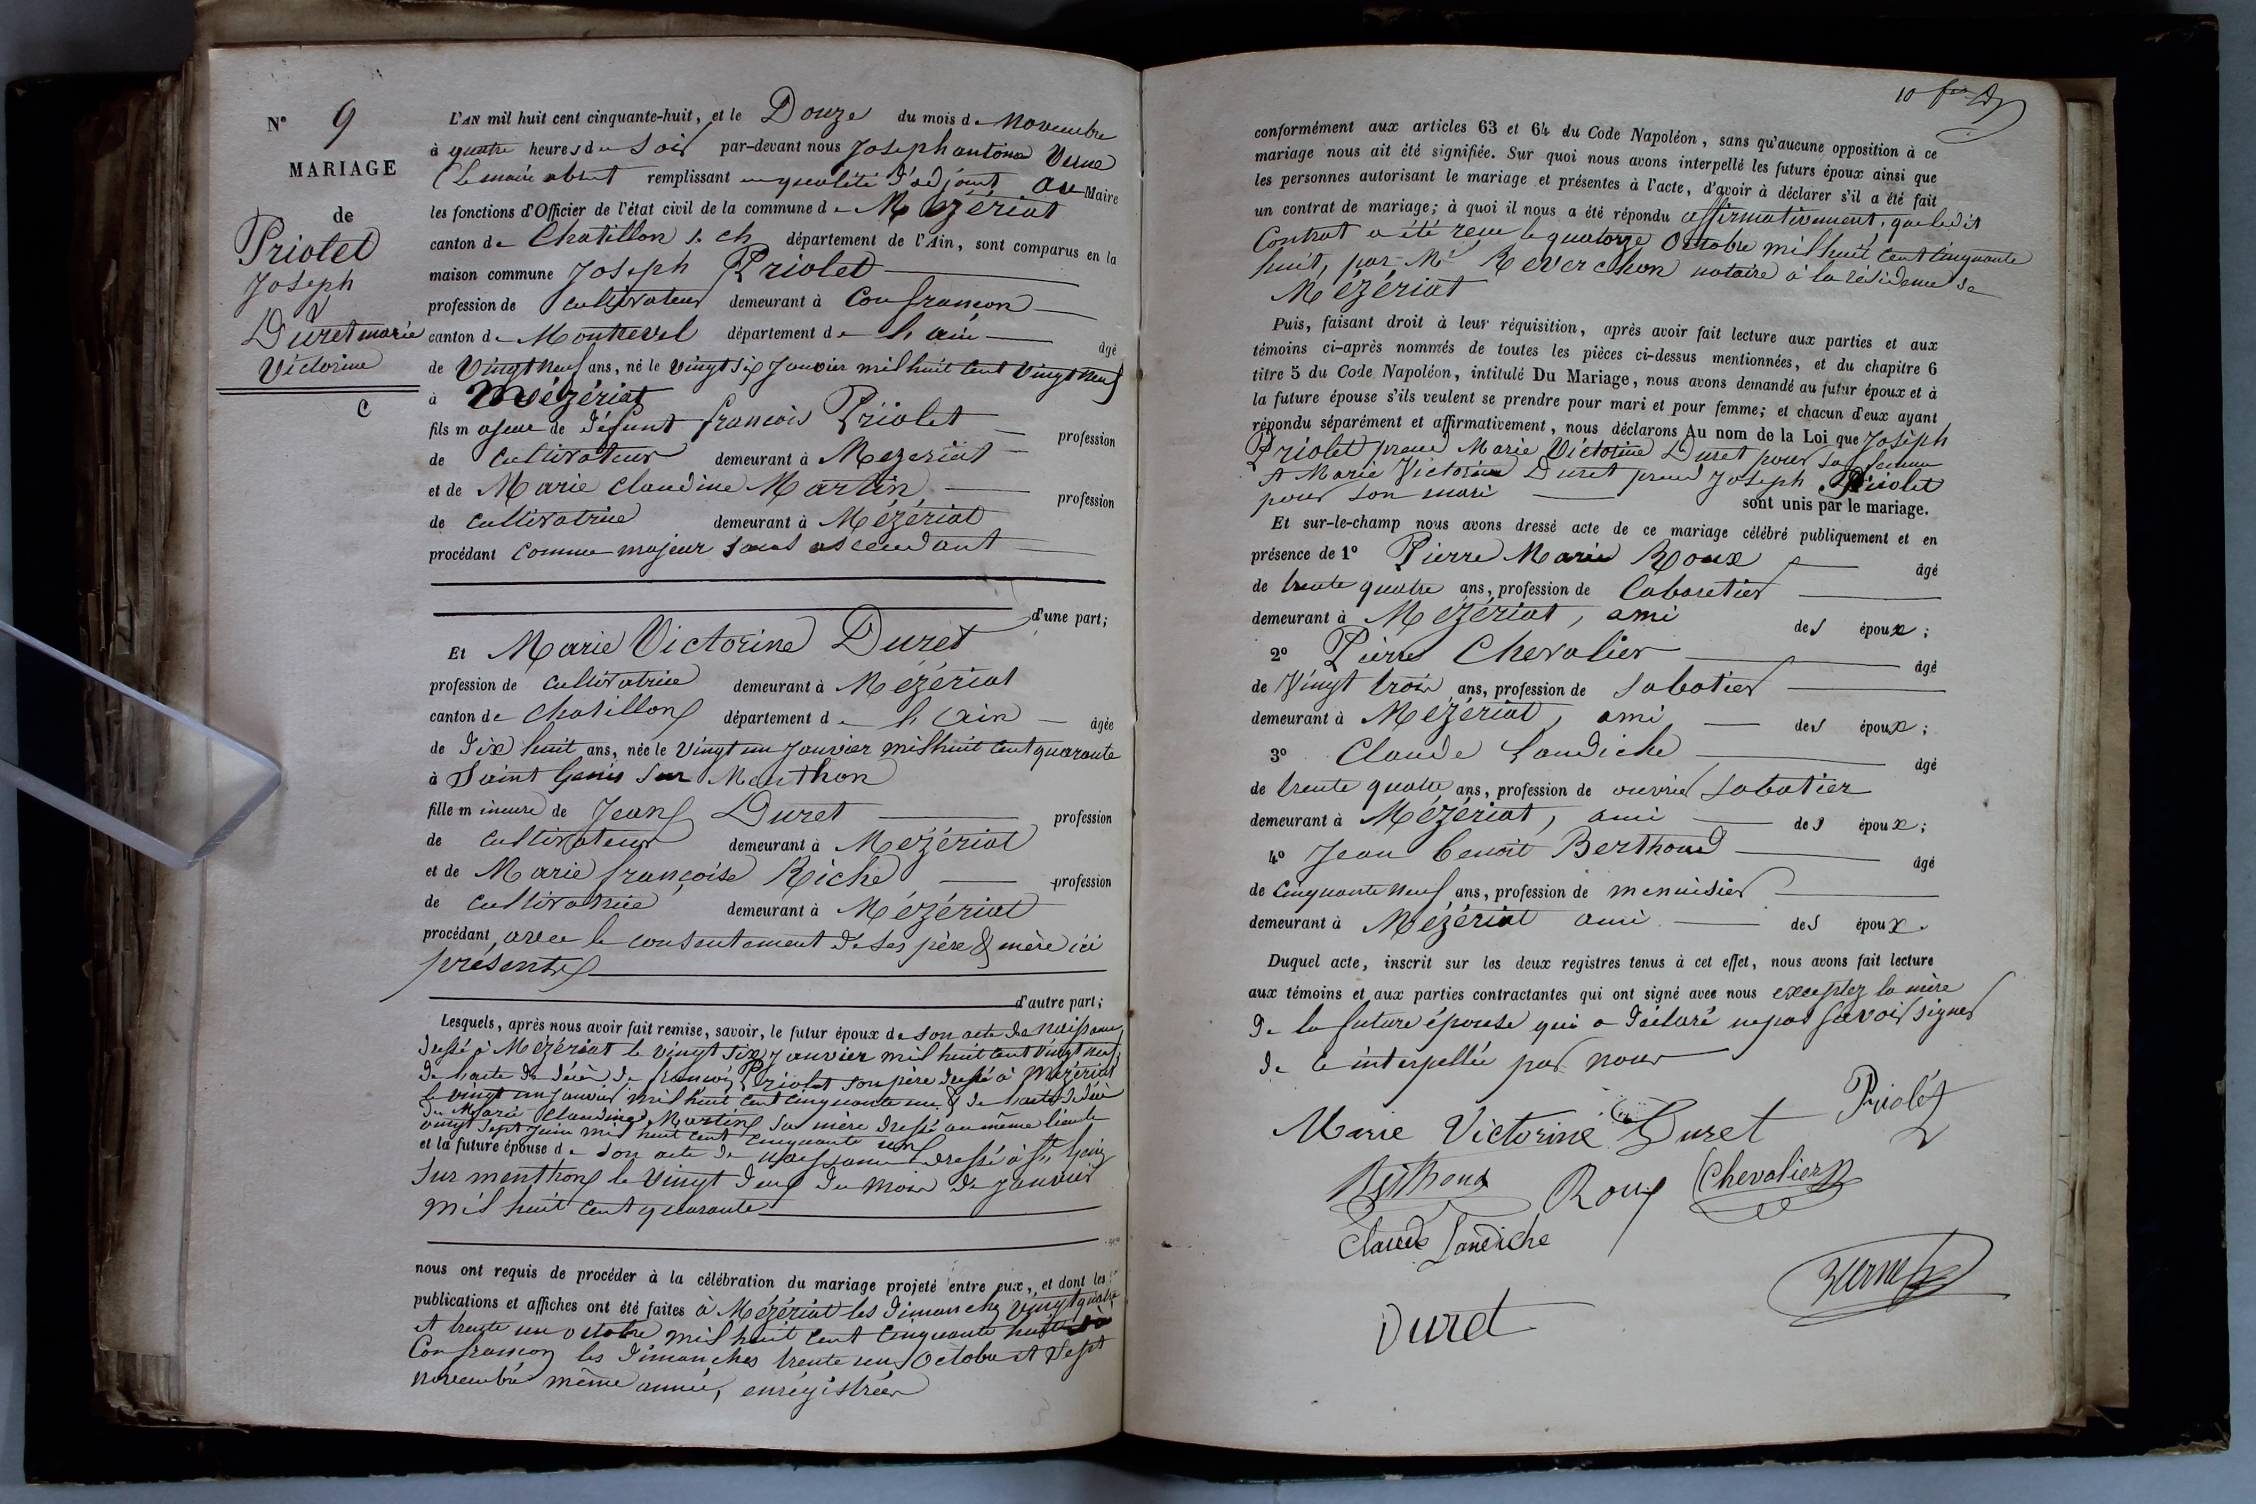 N° 9
MARIAGE
de
Priolet
Joseph
&
Duret marie
Victorine
C
L'AN mil huit cent cinquante-huit, et le Douze du mois de Novembre
à quatre heures du Soir par-devant nous Joseph antoine Verne
(le maire absent remplissant en qualité d'adjoint au Maire
les fonctions d'Officier de l'état civil de la commune de Mézériat
canton de Chatillon s. ch département de l'Ain, sont comparus en la
maison commune Joseph Priolet
profession de cultivateur demeurant à Confrancon
canton de Montrevel département de l'ain âgé
de Vingt neuf ans, né le vingt six Janvier mil huit cent vingt neuf
à Mézériat
fils majeur de défunt françois Priolet profession
de cultivateur demeurant à Mezeriat
et de Marie Claudine Martin profession
de cultivatrice demeurant à Mézériat
procédant comme majeur sans ascendant
d'une part;
Et Marie Victorine Duret
profession de cultivatrice demeurant à Mézériat
canton de Chatillon département de l'Ain âgée
de dix huit ans, née le vingt un Janvier mil huit cent quarante
à Saint Genis sur Menthon
fille mineure de Jean Duret profession
de cultivateur demeurant à Mézériat
et de Marie françoise Riche profession
de cultivatrice demeurant à Mézériat
procédant avec le consentement de ses père & mère ici
présents
d'autre part;
Lesquels, après nous avoir fait remise, savoir, le futur époux de son acte de Naissance
dressé à Mézériat le vingt six Janvier mil huit cent vingt neuf,
de l'acte de décès de françois Priolet son père dressé à Mézériat
le vingt un janvier mil huit cent cinquante un & de l'acte de décès
de Marie Claudine Martin sa mère dressé au même lieu le
vingt sept juin mil huit cent cinquante
et la future épouse de son acte de naissance dressé à St Genis
sur menthon le vingt deux du mois de Janvier
mil huit cent quarante
nous ont requis de procéder à la célébration du mariage projeté entre eux, et dont les
publications et affiches ont été faites à Mézériat les dimanches vingt quatre
et trente un octobre mil huit cent cinquante huit à
Confrancon les dimanches trente un Octobre et Sept
novembre même année, enrégistrées
10 f
conformément aux articles 63 et 64 du Code Napoléon, sans qu'aucune opposition à ce
mariage nous ait été signifiée. Sur quoi nous avons interpellé les futurs époux ainsi que
les personnes autorisant le mariage et présentes à l'acte, d'avoir à déclarer s'il a été fait
un contrat de mariage; à quoi il nous a été répondu affirmativement, que ledit
Contrat a été reçu le quatorze Octobre mil huit cent cinquante
huit, par Me Reverchon notaire à la résidence de
Mézériat
Puis, faisant droit à leur réquisition, après avoir fait lecture aux parties et aux
témoins ci-après nommés de toutes les pièces ci-dessus mentionnées, et du chapitre 6
titre 5 du Code Napoléon, intitulé Du Mariage, nous avons demandé au futur époux et à
la future épouse s'ils veulent se prendre pour mari et pour femme; et chacun d'eux ayant
répondu séparément et affirmativement, nous déclarons Au nom de la Loi que Joseph
Priolet prend Marie Victorine Duret pour sa femme
et Marie Victorine Duret prend Joseph Priolet
pour son mari
sont unis par le mariage.
Et sur-le-champ nous avons dressé acte de ce mariage célébré publiquement et en
présence de 1° Pierre Marie Roux âgé
de trente quatre ans, profession de Cabaretier
demeurant à Mézériat, ami des époux;
2° Pierre Chevalier âgé
de Vingt trois ans, profession de sabotier
demeurant à Mézériat, ami des époux;
3° Claude Landiche âgé
de trente quatre ans, profession de ouvrier sabotier
demeurant à Mézériat, ami des époux;
4° Jean benoit Berthoud âgé
de cinquante neuf ans, profession de menuisier
demeurant à Mézériat ami des époux.
Duquel acte, inscrit sur les deux registres tenus à cet effet, nous avons fait lecture
aux témoins et aux parties contractantes qui ont signé avec nous exceptez la mère
de la future épouse qui a déclaré ne pas savoir signer
de ce interpellée par nous
Priolet
Marie Victorine Duret
Berthoud Roux Chevalier
Claude Landiche
Verne
Duret